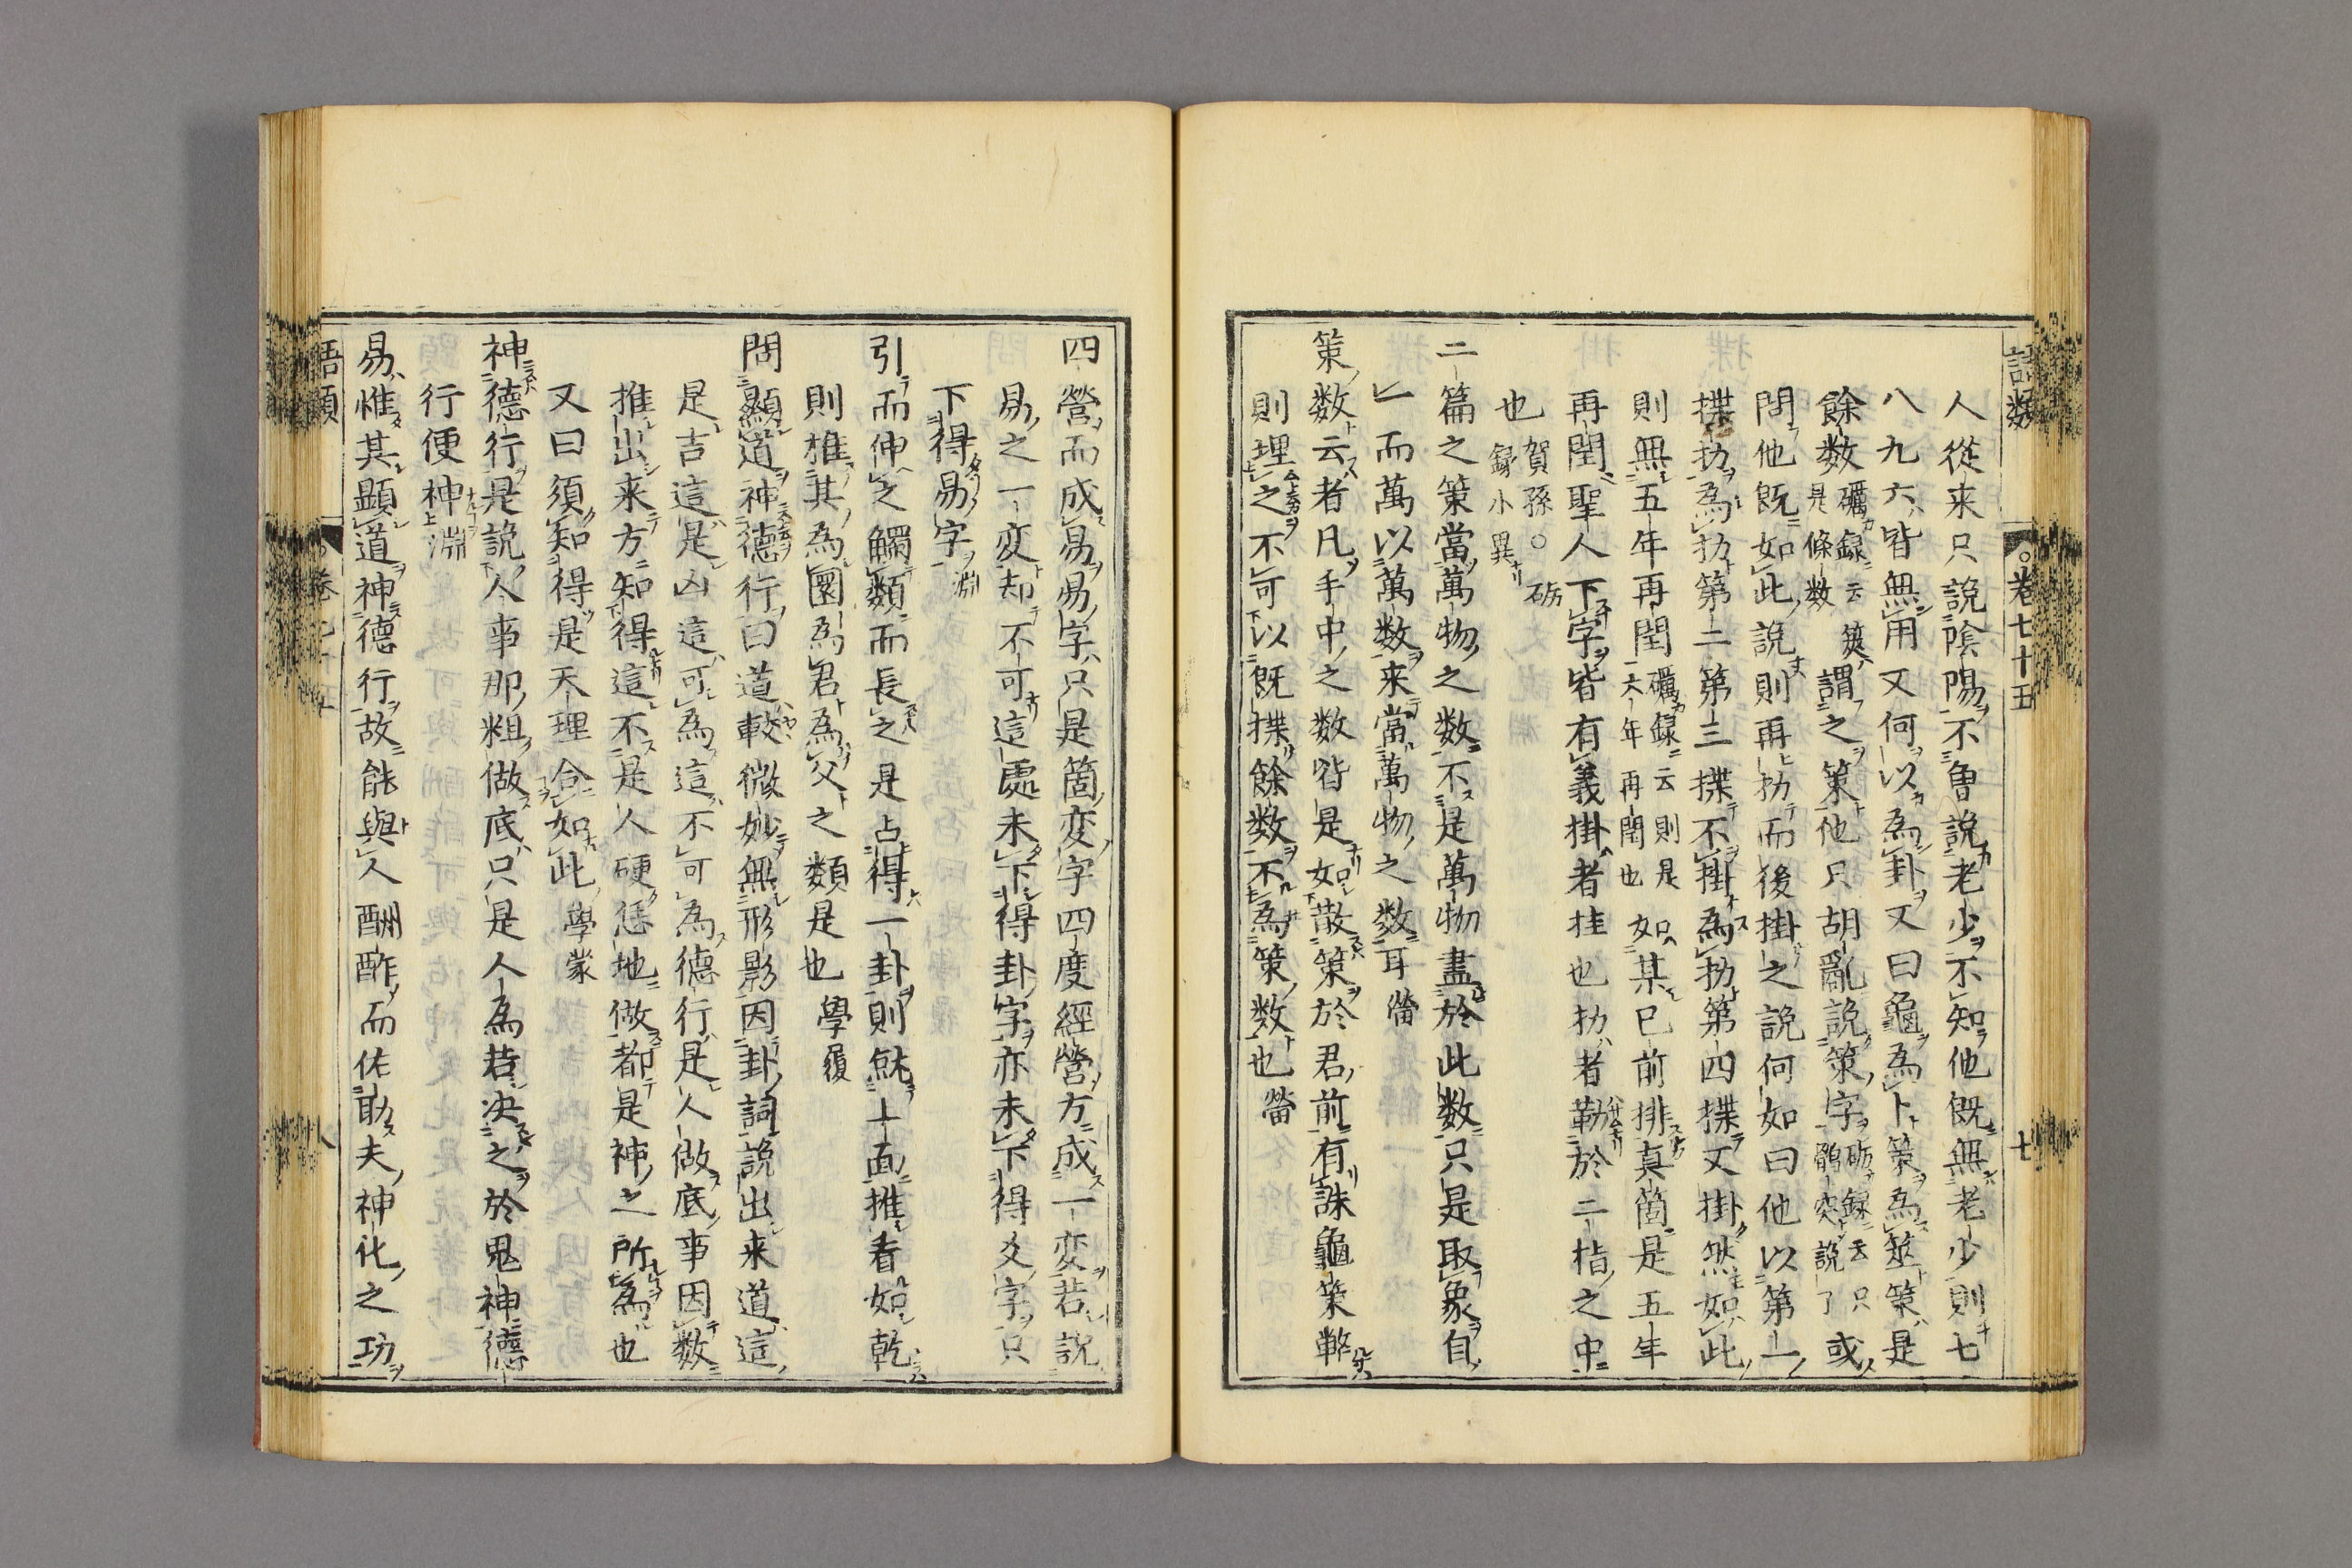 人從来只說陰陽不魯說老少不知他既無老少則七
八九六皆無用又何以為卦又曰龜為卜策為筮策是
餘数礪録云筴是條数謂之策他只胡亂說策字砺録云只鶻突說了或
問他既如此說則再扐而後掛之說何如曰他以第一
揲扐為扐第二第三揲不掛為扐第四揲又掛然如此
則無五年再閏礪録云則是六年再閏也如某已前排真箇是五年
再閏聖人下字皆有義掛者挂也扐者勒於二指之中
也賀孫○砺録小異
二篇之策當萬物之数不是萬物盡於此数只是取象自
一而萬以萬数来當萬物之数耳㽦
策数云者凡手中之数皆是如散策於君前有誅龜策弊
則埋之不可以既揲餘数不為策数也㽦
語类
卷七十五
七
四營而成易易字只是箇変字四度經營方成一変若說
易之一変却不可這處未下得卦字亦未下得爻字只
下得易字淵
引而伸之觸類而長之是占得一卦則就上面推看如乾
則推其為圜為君為父之類是也學履
問顯道神德行曰道較微妙無形影因卦詞說出来道這
是吉這是凶這可為這不可為德行是人做底事因数
推出来方知得這不是人硬恁地做都是神之所為也
又曰須知得是天理合如此學蒙
神德行是說人事那粗做底只是人為若决之於鬼神德
行便神淵
易惟其顯道神德行故能與人酬酢而佑助夫神化之功
語類